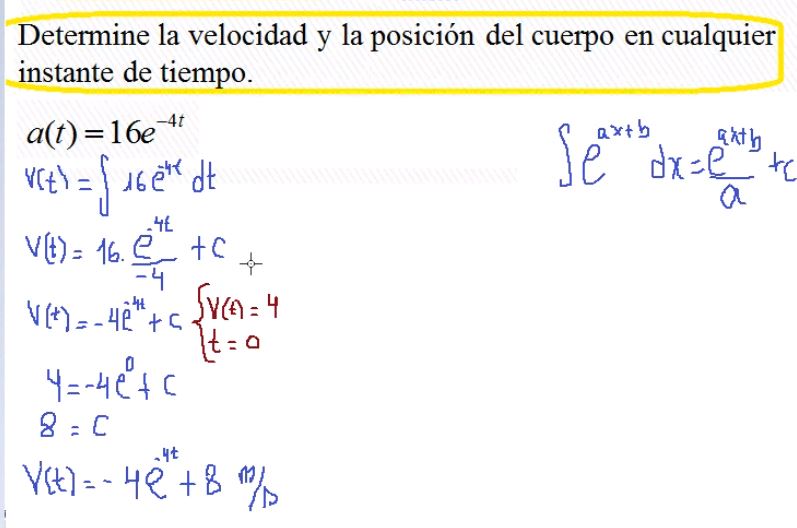 Determine la velocidad y la posición del cuerpo en cualquier
instante de tiempo.
a(t) = 16e^{-4t}
V(t) = ∫ 16 e^{-4t} dt
∫ e^{ax+b} dx = \frac{e^{ax+b}}{a} + c
V(t) = 16. \frac{e^{-4t}}{-4} + c
V(t) = -4e^{-4t} + c { V(t) = 4
t = 0
4 = -4e^{0} + c
8 = C
V(t) = -4e^{-4t} + 8 m/s